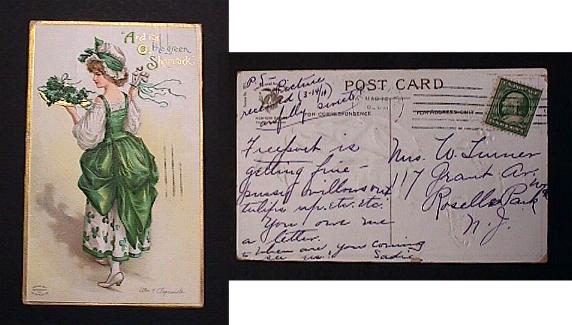 "And for
the green
Shamrock."
Ellen H. Clapsaddle
P.S. - Picture
rec'd (3-14/10)
awfully sweet.
POST CARD
FOR CORRESPONDENCE
FOR ADDRESS ONLY
Freeport is
getting fine -
pussy willows out
tulips up. etc. etc.
You owe me
a letter.
When are you coming
to see us? Sadie
Mrs. W. Turner
117 Grant Av.
Roselle Park
N.J.